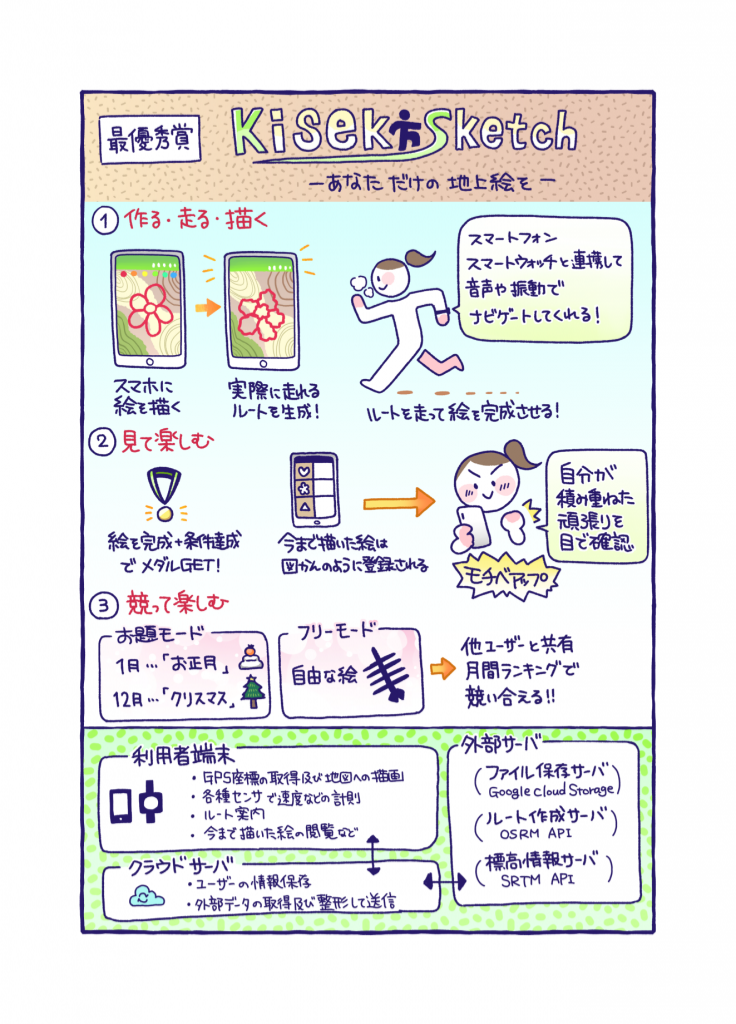 最優秀賞
Kiseki Sketch
ーあなただけの地上絵をー
① 作る・走る・描く
スマートフォン
スマートウォッチと連携して
音声や振動で
ナビゲートしてくれる!
スマホに
絵を描く
実際に走れる
ルートを生成!
ルートを走って絵を完成させる!
② 見て楽しむ
絵を完成+条件達成
でメダルGET!
今まで描いた絵は
図かんのように登録される
自分が
積み重ねた
頑張りを
目で確認
モチベアップ
③ 競って楽しむ
お題モード
1月…「お正月」
12月…「クリスマス」
フリーモード
自由な絵
他ユーザーと共有
月間ランキングで
競い合える!!
利用者端末
・GPS座標の取得及び地図への描画
・各種センサで速度などの計測
・ルート案内
・今まで描いた絵の閲覧など
クラウドサーバ
・ユーザーの情報保存
・外部データの取得及び整形して送信
外部サーバ
(ファイル保存サーバ
Google Cloud Storage)
(ルート作成サーバ
OSRM API)
(標高情報サーバ
SRTM API)